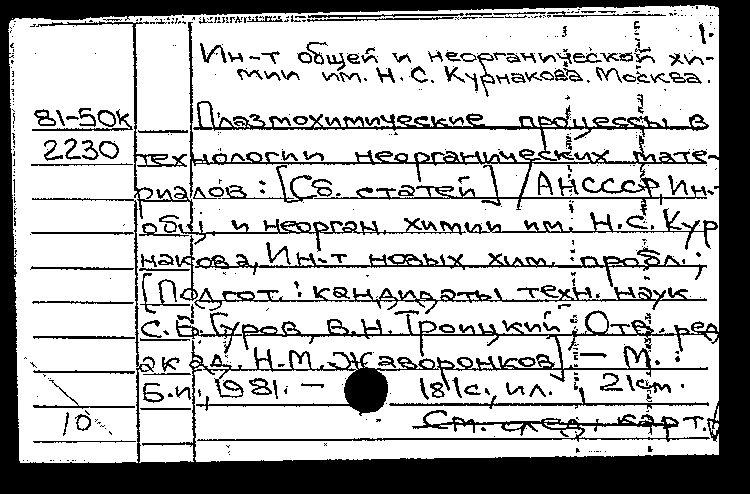 1.
Ин-т общей и неорганической хи-
мии им. Н. С. Курнакова. Москва.
81-50к Плазмохимические процессы в
2230 технологии неорганических мате-
риалов : [Сб. статей] / АН СССР, Ин-т
общ. и неорган. химии им. Н.С. Кур
накова, Ин-т новых хим. пробл. ;
[Подгот. : кандидаты техн. наук
С.В. Гуров, В.Н. Троицкий Отв. ред
акад. Н.М. Жаворонков] – М. :
Б.и., 1981. – 181с., ил. , 21см.
10 См. след. карт.